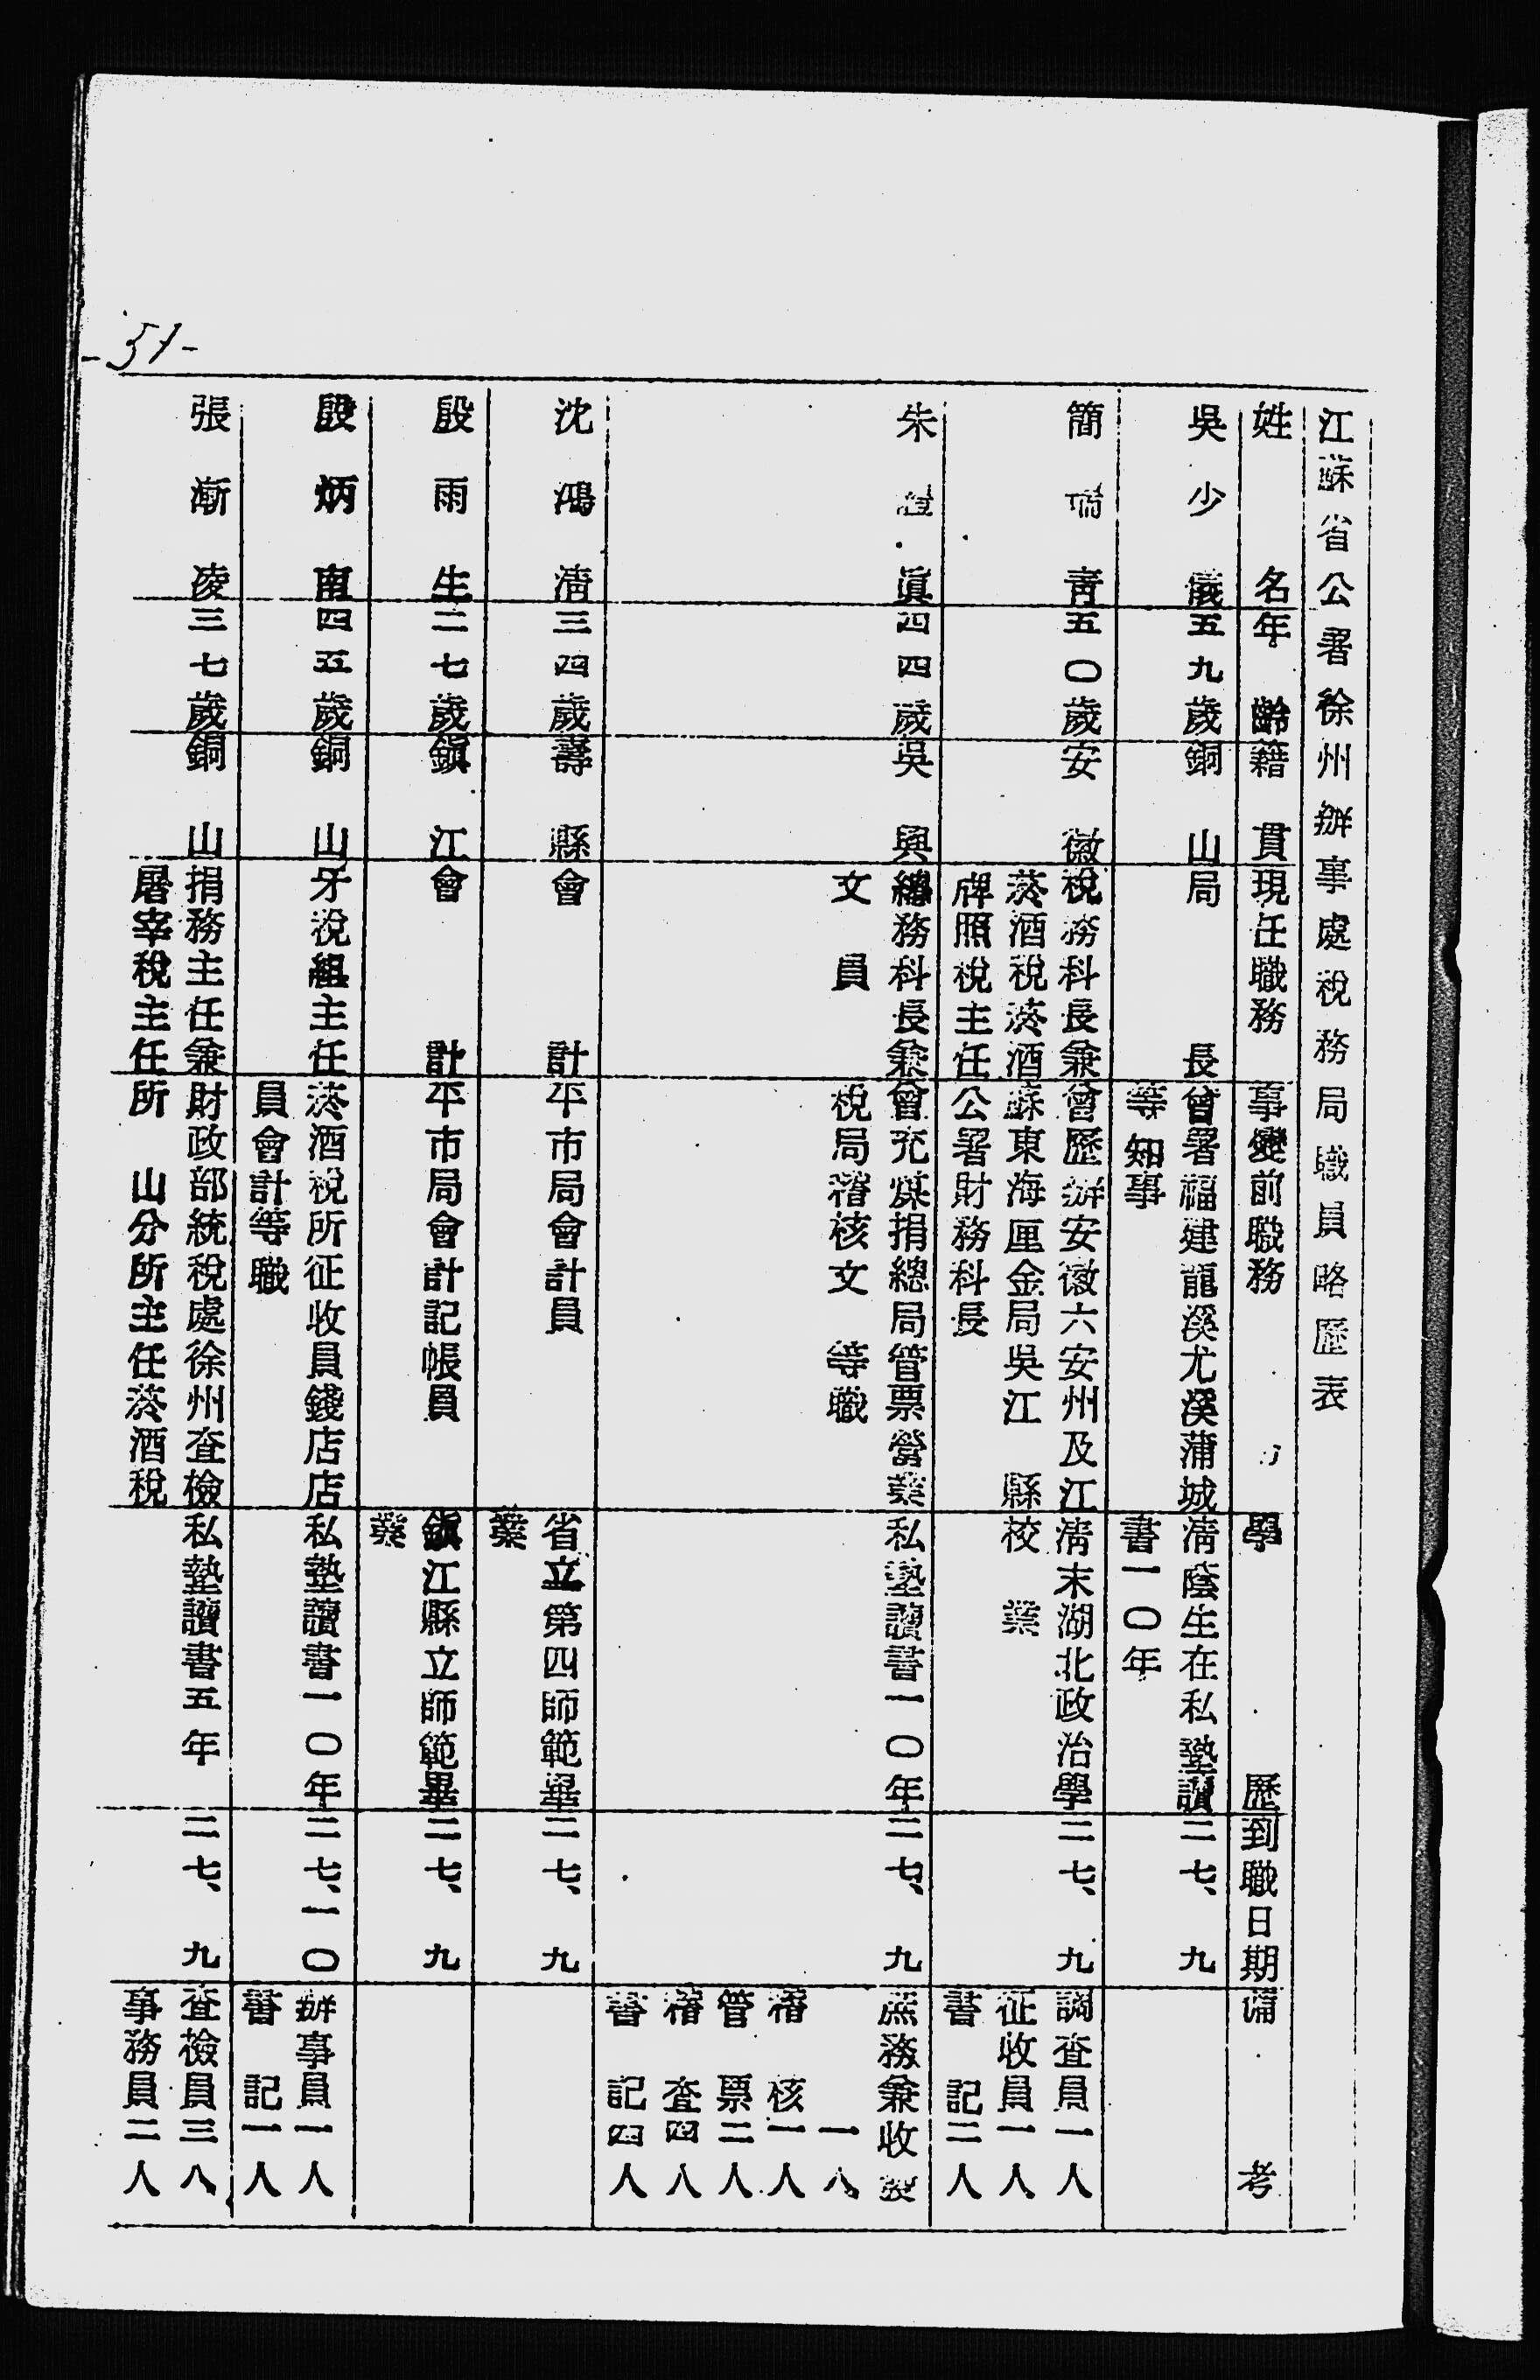 -51-
江蘇省公署徐州辦事處稅務局職員略歷表
姓名 年齡 籍貫 現任職務 事變前職務 學歷 到職日期 備考
吳少儀 五九歲 銅山 局長 曾署福建龍溪尤溪蒲城
等知事 清蔭生在私塾讀
書一〇年 二七、九
簡瑞青 五〇歲 安徽 稅務科長兼
菸酒稅菸酒
牌照稅主任 曾歷辦安徽六安州及江
蘇東海厘金局吳江縣
公署財務科長 清末湖北政治學
校業 二七、九 調查員一人
征收員一人
書記二人
朱眞 四四歲 吳興 總務科長兼
文員 曾充煤捐總局管票營業
稅局稽核文等職 私塾讀書一〇年 二七、九 庶務兼收發
一人
稽核一人
管票二人
稽查四人
書記四人
沈鴻清 三四歲 壽縣 會計 平市局會計員 省立第四師範畢
業 二七、九
殷雨生 二七歲 鎭江 會計 平市局會計記帳員 鎭江縣立師範畢
業 二七、九
殷炳南 四五歲 銅山 牙稅組主任 菸酒稅所征收員錢店店
員會計等職 私塾讀書一〇年 二七、一〇 辦事員一人
書記一人
張漸凌 三七歲 銅山 捐務主任兼
屠宰稅主任 財政部統稅處徐州查檢
所山分所主任菸酒稅 私塾讀書五年 二七、九 查檢員三人
事務員二人